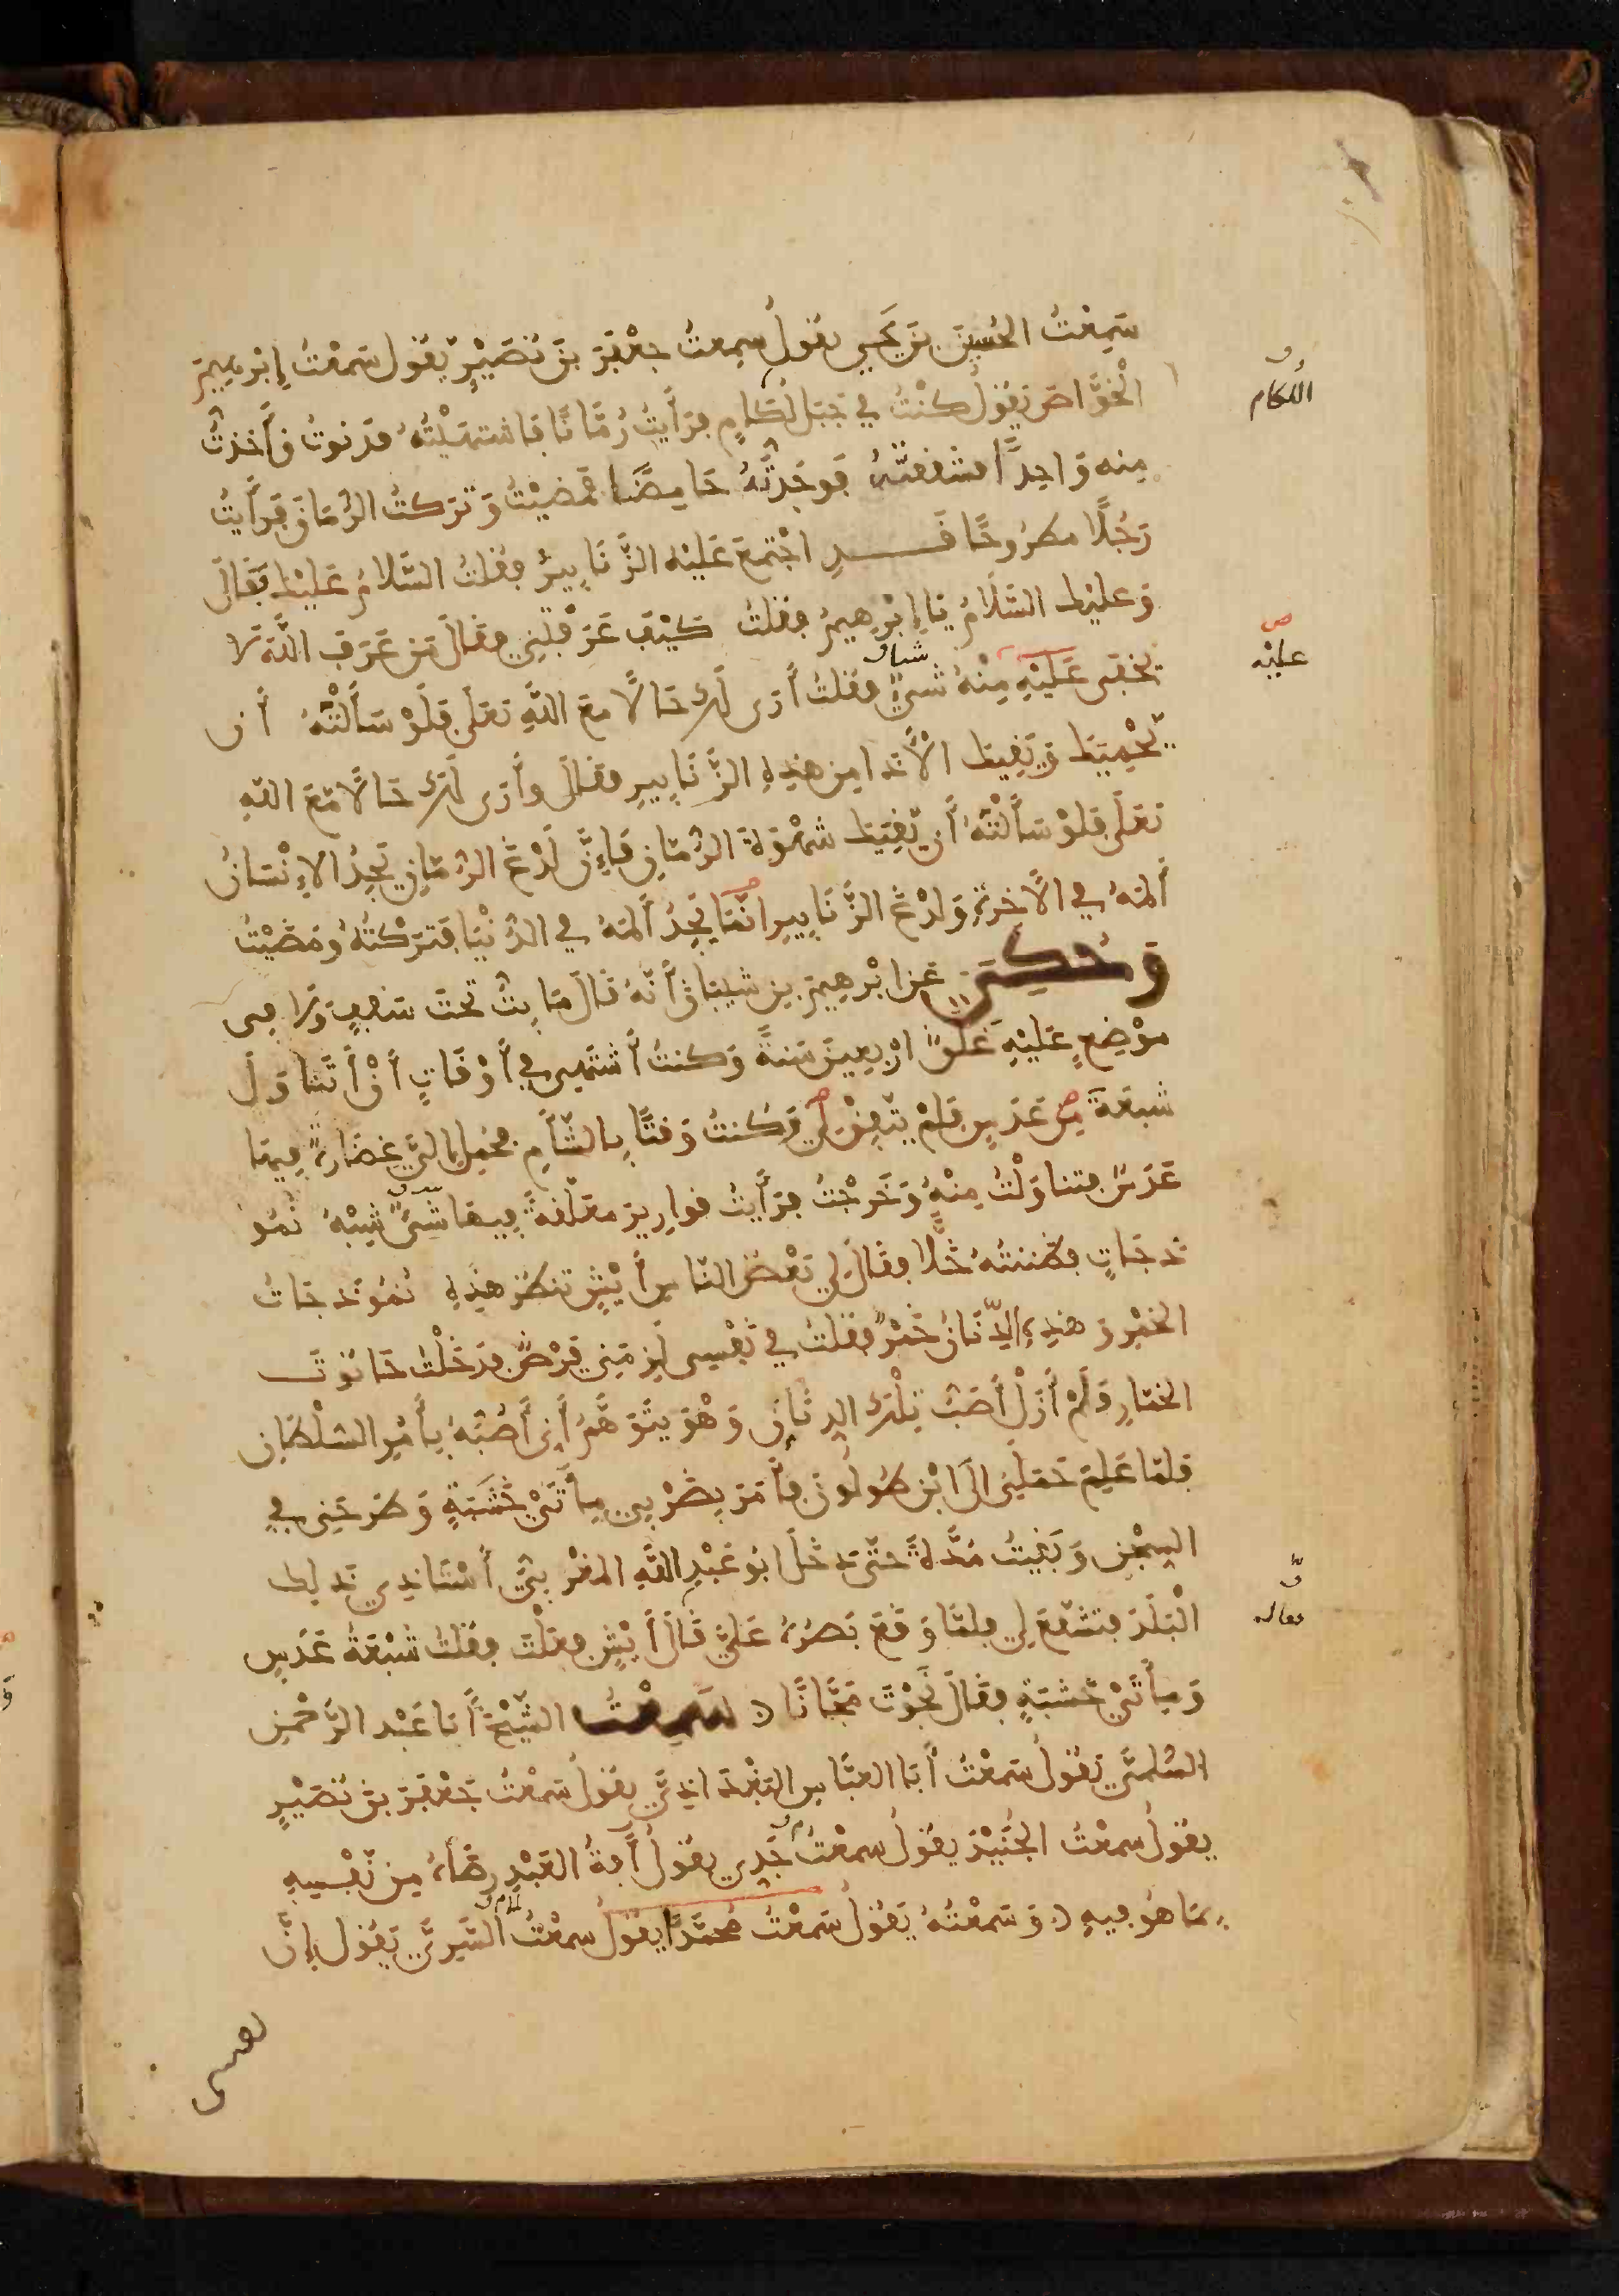 سَمِعْتُ الحُسَيْنَ بْنَ يَحْيَى يَقُولُ سَمِعتُ جعْفَرَ بْنَ نُصَيْرٍ يَقُول سَمعْتُ إِبْرهِيمَ
الْخَوَّاصَ يَقُولُ كُنْتُ فِي جَبَلِ لُكَامٍ فرَأَيتُ رُمَّانًا فَاشتهَيْتُهُ فدَنوتُ فأَخذتُ
اللكام
مِنه وَاحِدًا فشققتُهُ فَوَجَدتُّهُ حَامِضًا فمَضَيْتُ وَتَرَكتُ الرُّمَّانَ فَرَأَيتُ
رَجُلًا مطرُوحًا قَدِ اجْتَمَعَ عَلَيْهِ الزَّنَابِيرُ فقُلتُ السَّلامُ عَلَيْكَ فَقَالَ
وَعلَيْكَ السَّلَامُ يَا إِبْرهِيمُ فقُلتُ كَيْفَ عَرَفْتَنِي فقَالَ مَن عَرَفَ اللَّهَ لَا
يَخْفَى عَلَيْهِ مِنْهُ شَيْءٌ فقلتُ أَرَى لَكَ حَالًا معَ اللَّهِ تعَلَى فَلَوْ سَأَلْتَهُ أَن
ص
عليْه
يَحْمِيَكَ وَيَقِيَكَ الْأَذَا مِن هذِهِ الزَّنَابِيرِ فقَالَ وأَرَى لَكَ حَالًا مَعَ اللهِ
تعَلَى فَلَوْ سَأَلْتَهُ أَن يَقِيَكَ شَهْوَةَ الرُّمَّانِ فَإِنَّ لَدْغَ الرُّمَّانِ يَجِدُ الإِنْسَانُ
أَلَمَهُ فِي الْآخِرَةِ وَلَدْغَ الزَّنَابِيرِ إنَّمَا يَجِدُ أَلَمَهُ فِي الدُّنْيَا فَتَرَكْتُهُ وَمَضَيْتُ
وَحُكِيَ عَن ابْرهِيمَ بنِ شَيْبَانَ أَنَّهُ قَالَ مَا بِتُّ تحْتَ سَقفٍ وَلَا فِى
موْضِعٍ عَلَيْهِ غَلَقٌ ارْبعِينَ سَنةً وَكنتُ أَشْتَهِى فِي أَوْقَاتٍ أَنْ أَتَنَاوَلَ
شبعَةَ مِن عَدَسٍ فَلَمْ يَتَّفِقْ لِي فَكنتُ وَقتًا بِالشَّأْمِ فحُمِلَ الَيَّ غضَارَةٌ فِيهَا
عَدَسٌ فتنَاوَلْتُ مِنْهُ وَخَرجْتُ فرَأَيتُ قوارِيرَ معَلَّقَةً فِيهَا شَيْءٌ شِبْهُ نُمُو
ذجَاتٍ فظَننتُهُ خَلًّا فقَالَ لِي بَعْضُ النَّاسِ أَيْشٍ تنظُرُ هذِهِ نُمُوذجَاتُ
الخَمْرِ وَهذِهِ الدِّنَانُ خَمْرٌ فقُلتُ فِي نَفْسِى لَزِمَنِي فَرْضٌ فدَخَلْتُ حَانُوتَ
الخمَّارِ وَلَمْ أَزَلْ أَصُبُّ تِلْكَ الدِنَانَ وَهْوَ يتَوَهَّمُ أَنِّى أَصُبُّهُ بِأَمْرِ السُّلْطَانِ
فَلمَّا عَلِمَ حَمَلَنِى الَى ابْنِ طُولُونَ فأَمَرَ بِضَرْبِي مِأَتَيْ خَشَبَةٍ وَطَرَحَنِى فِي
السِّجْنِ وَبَقِيتُ مُدَّةً حَتَّى دخَلَ ابُو عَبْدِ اللَّهِ المَغْرِبِيُّ أُسْتَاذِي ذلِكَ
الْبَلَدَ فتشَفَّعَ لِي فلمَّا وَقَعَ بَصَرُهُ عَلَيَّ قَالَ أَيْشٍ فعَلْتَ فقُلتُ شَبْعَةُ عَدَسٍ
فقال له
وَمِأَتَيْ خَشبَةٍ فقَالَ نَجَوْتَ مَجَّانًا سَمِعْتُ الشَّيْخَ أَبَا عَبْدِ الرَّحْمٰنِ
السُّلَمِيَّ يَقُولُ سَمعْتُ أَبَا العَبَّاسِ البَغْدَاذِيَّ يقُولُ سَمعْتُ جَعْفَرَ بْنَ نُصَيْرٍ
يقُولُ سمعْتُ الجُنَيْدَ يقُولُ سمعْتُ جَدِي يقُولُ أَفَةُ العَبْدِ رِضَاهُ مِن نَفْسِهِ
بِمَا هُوَ فيهِ وَسَمعْتُهُ يَقُولُ سَمعْتُ مُحمَّدًا يقُولُ سمعْتُ السَّرِيَّ يَقُولُ إِنَّ
نفسى